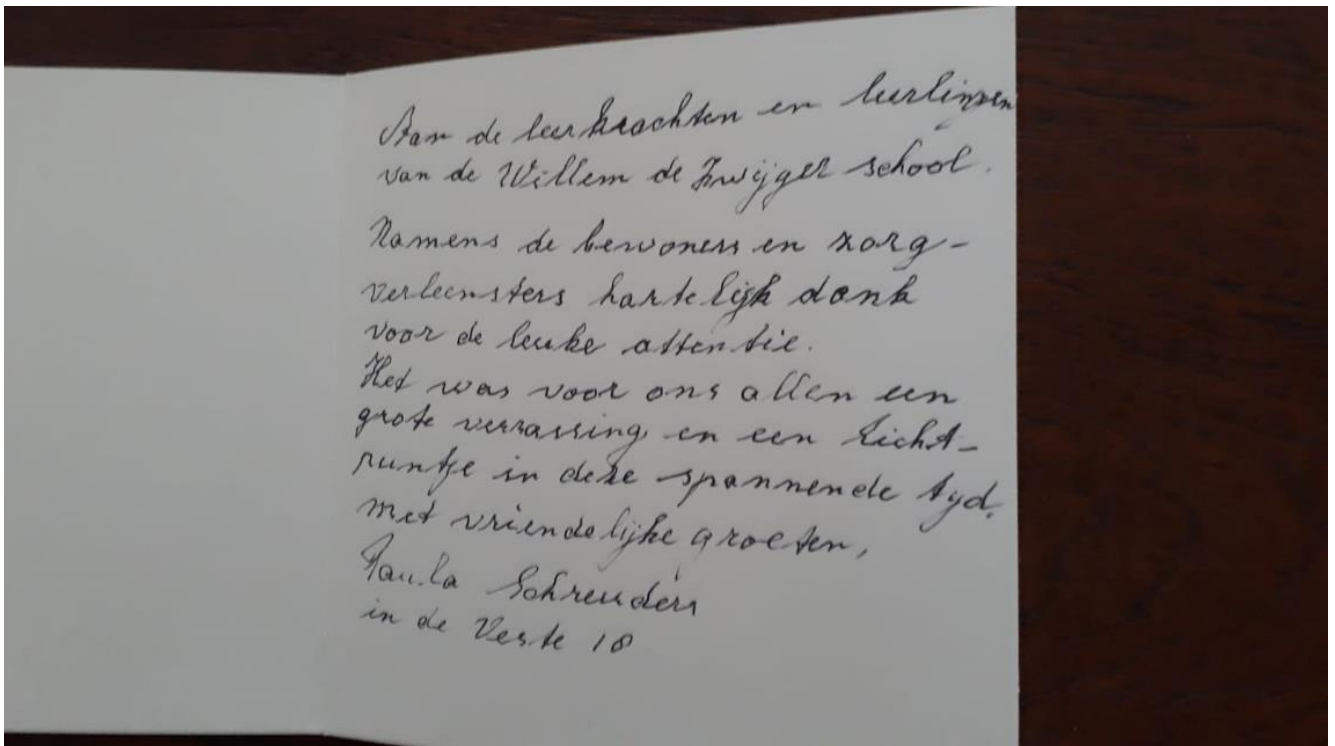 Aan de leerkrachten en leerlingen
van de Willem de Zwijger school.
Namens de bewoners en zorg-
verleensters hartelijk dank
voor de leuke attentie.
Het was voor ons allen een
grote verrassing en een licht-
puntje in deze spannende tijd.
Met vriendelijke groeten,
Paula Schreuders
in de Veste 18